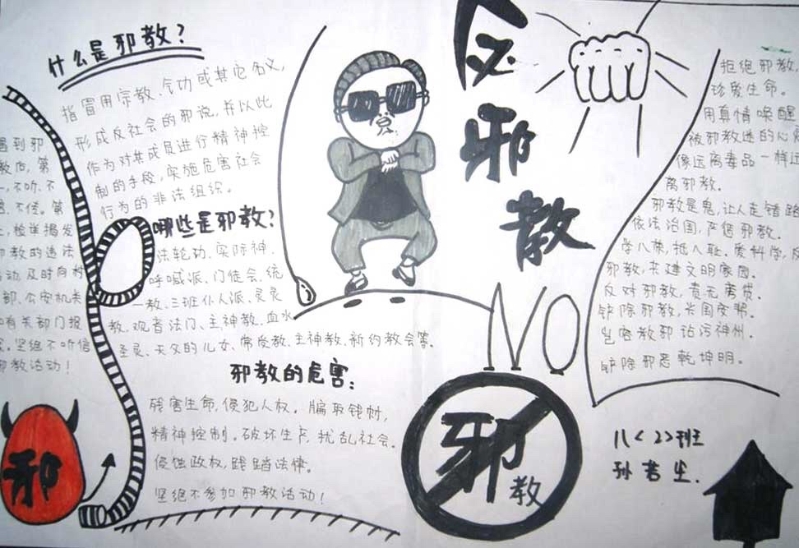 什么是邪教?
指冒用宗教、气功或其它名义,
形成反社会的邪说,并以此
作为对其成员进行精神控
制的手段,实施危害社会
行为的非法组织。
遇到邪
教后,第
一,不听、不
不信。第
检举揭发
邪教的违法
活动及时向村
部、公安机关
和有关部门报
坚绝不听信
邪教活动!
哪些是邪教?
法轮功、实际神、
呼喊派、门徒会、统
一教、三班仆人派、灵灵
教、观音法门、主神教、血水
圣灵、天父的儿女、常受教、主神教、新约教会等。
邪教的危害:
残害生命,侵犯人权。骗取钱财,
精神控制。破坏生产,扰乱社会。
侵蚀政权,践踏法律。
坚绝不参加邪教活动!
邪
邪
教
NO
邪
教
拒绝邪教,
珍爱生命。
用真情唤醒
被邪教迷的心
像远离毒品一样远
离邪教。
邪教是鬼,让人走错路
依法治国,严惩邪教。
学八荣,抵八耻。爱科学,反
邪教,共建文明家园。
反对邪教,责无旁贷。
铲除邪教,
岂容教邪玷污神州。
铲除邪恶乾坤明。
八〈2〉班
孙若